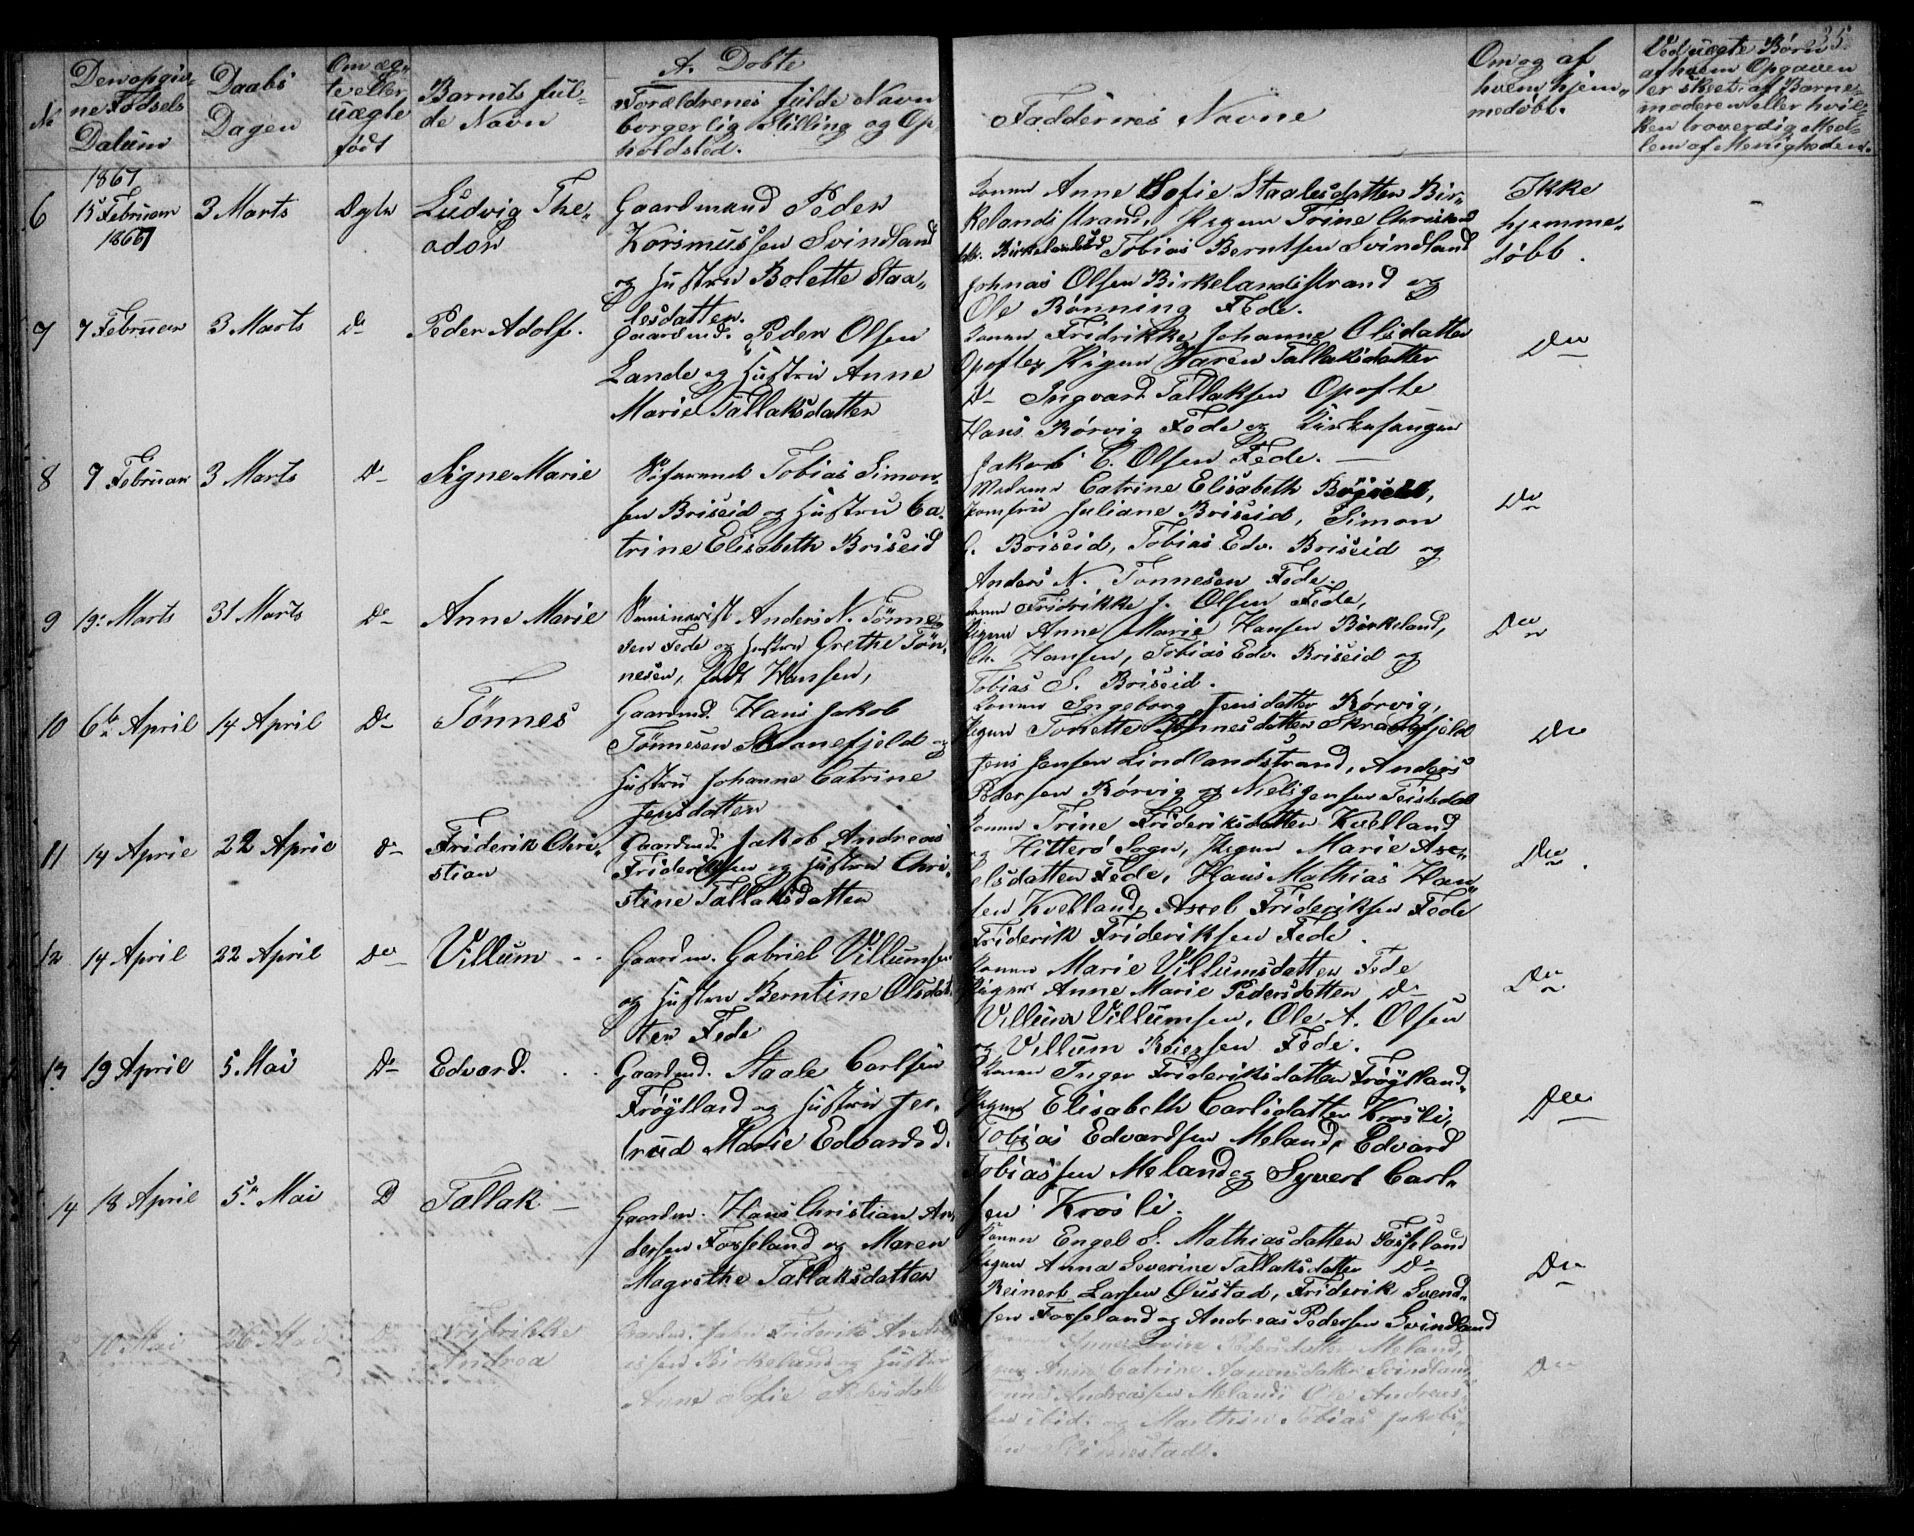 No
Den opgiv-
ne Fødsels
Datum
Daabs
Dagen
Om æg-
te eller
uægte
født
Barnets ful-
de Navn
A. Døbte
Forældrenes fulde Navn
borgerlig Stilling og Op
holdsted.
Faddernes Navne
Om og af
hvem hjem-
medøbt.
35
Ved uægte Børn
af hvem Opgaven
er skeet af Barne-
moderen eller hvil-
ken troverdig Med-
lem af Menigheden.
1867
6 15 Februar 3 Marts Ægte Ludvig The-
1866
odor
Gaardmand Peder
Korsmussen Svindland
og Hustru Bolette Staa-
lesdatter.
Konen Anne Sofie Staalesdatter Bir-
kelandsstrand, Pigen Trine
Birkeland Tobias Berntsen Svindland
Johnas Olsen Birkelandsstrand og
Ole Rønning Fede.
Ikke
hjemme-
døbt.
7 7 Februar 3 Marts Do Peder Adolf.
Gaardmd. Peder Olsen
Lande og Hustru Anne
Marie Tallaksdatter
Konen Fridrikke Johanne Olsdatter
Opofte, Pigen Karen Tallaksdatter
Do Ingvard Tallaksen Opofte
Hans Rørvig Fede og Kirkesanger
Jakob C. Olsen Fede.
Do
8 7 Februar 3 Marts Do Signe Marie
Tobias Simon-
sen Briseid og Hustru Ca-
trine Elisabeth Briseid
Madame Catrine Elisabeth Briseid,
Jomfru Juliane Briseid, Simon
Briseid, Tobias Edv. Briseid og
Anders N. Tønnesen Fede.
Do
9 19. Marts 31 Marts Do Anne Marie
Seminarist Anders N. Tønne-
sen Fede og Hustru Grethe Tøn-
nesen, født Hansen,
Konen Fridrikke J. Olsen Fede,
Pigen Anne Marie Hansen Birkeland,
Ch. Hansen, Tobias Edv. Briseid og
Tobias S. Briseid.
Do
10 6te April 14 April Do Tønnes
Gaardmd. Hans Jakob
Tønnesen Skranefjeld og
Hustru Johanne Catrine
Jensdatter
Konen Ingeborg Jensdatter Rørvig,
Pigen Tonette Tønnesdatter Skranefjeld
Jens Jensen Lindlandstrand, Andreas
Pedersen Rørvig og Niels Jensen Feistedal
Do
11 14 April 22 April Do Friderik Chri-
stian
Gaardmd. Jakob Andreas
Frideriksen og Hustru Chri-
stine Tallaksdatter
Konen Trine Frideriksdatter Kvelland
og Hitterø Sogn, Pigen Marie Axe-
elsdatter Fede, Hans Mathias Han-
sen Kvelland, Axel Frideriksen Fede
Friderik Frideriksen Fede.
Do
12 14 April 22 April Do Villum
Gaardm. Gabriel Villumsen
og Hustru Berntine Olsdat-
ter Fede
Konen Marie Villumsdatter Fede
Pigen Anne Marie Pedersdatter Do
Villum Villumsen, Ole A. Olsen
og Villum Reiersen Fede.
Do
13 19 April 5 Mai Do Edvard.
Gaardmd. Staale Carlsen
Frøylland og Hustru Jer-
trud Marie Edvardsd.
Konen Inger Frideriksdatter Frøylland
Pigen Elisabeth Carlsdatter Krosli,
Tobias Edvardsen Meland, Edvard
Tobiassen Meland og Syvert Carl-
sen Krosli.
Do
14 18 April 5. Mai D Tallak
Gaardm. Hans Christian An-
dersen Fosseland og Maren
Magrethe Tallaksdatter
Konen Engel S. Mathiasdatter Fosseland
Pigen Anna Severine Tallaksdatter Do
Reinert Larsen Øustad, Friderik Svend-
sen Fosseland og Andreas Pedersen Svindland
Do
10 Mai 26 Mai Fridrikke
Andrea
Friderik Andre-
assen Birkeland og Hustru
Anne Sofie
Anne Pedersdatter Meland,
Anne Catrine Aanensdatter Svindland,
Andreassen Meland, Ole Andreas-
sen ibid. og Marthin Tobias Jakob-
sen
Do